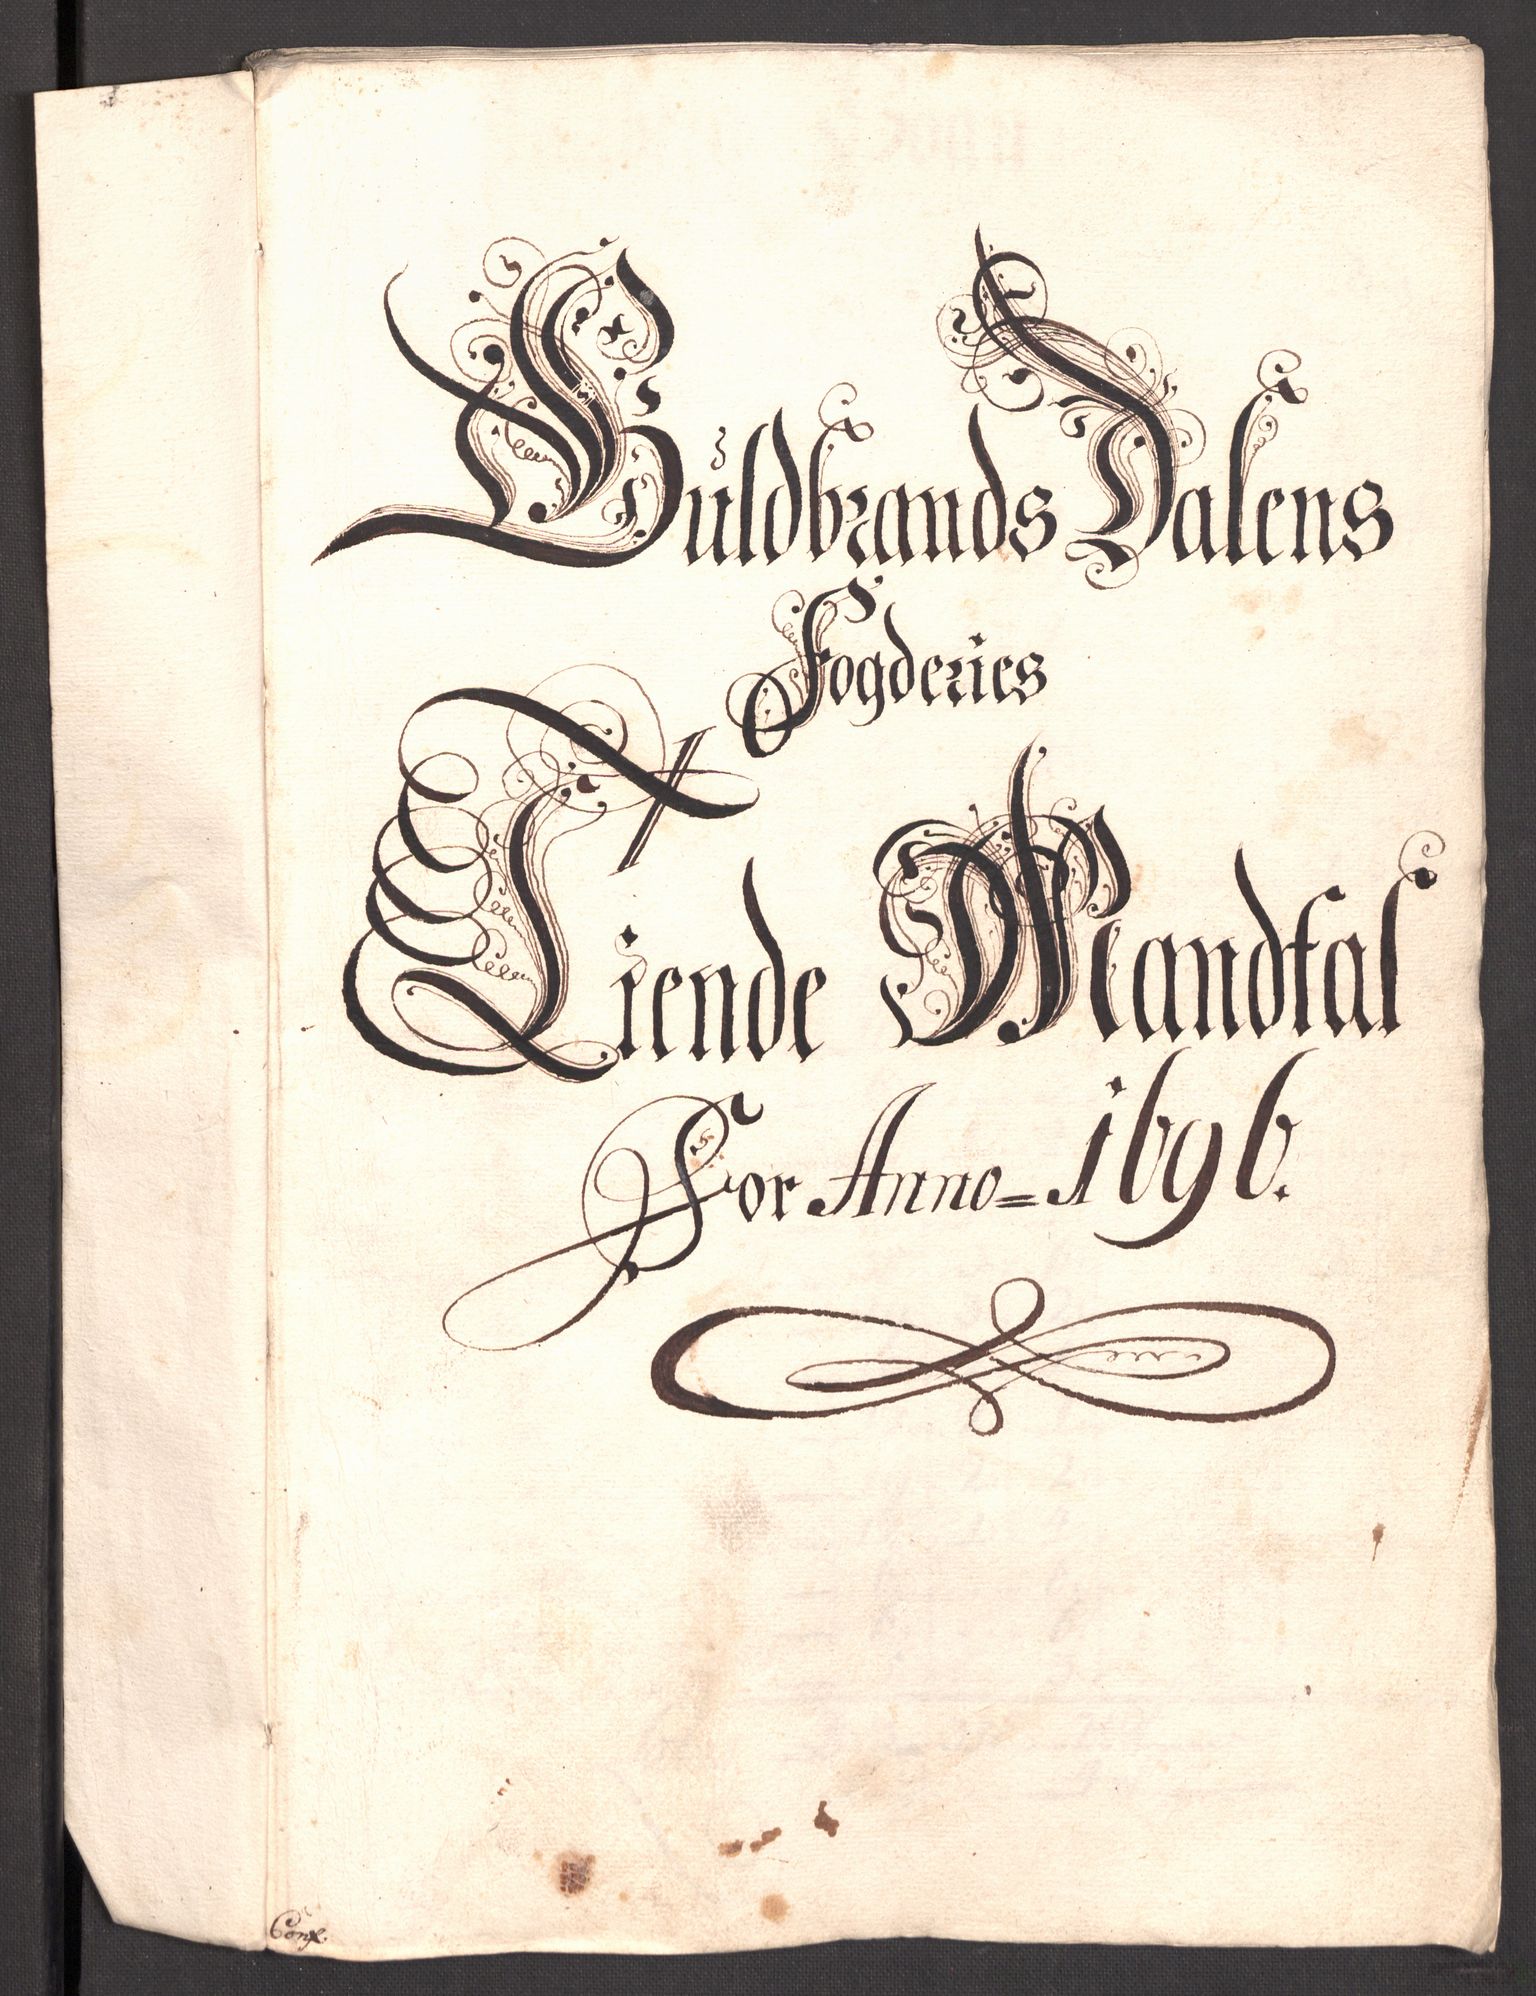 Guldbrands Dalens
Fogderies
Tiende Mandtal
For Anno = 1696.